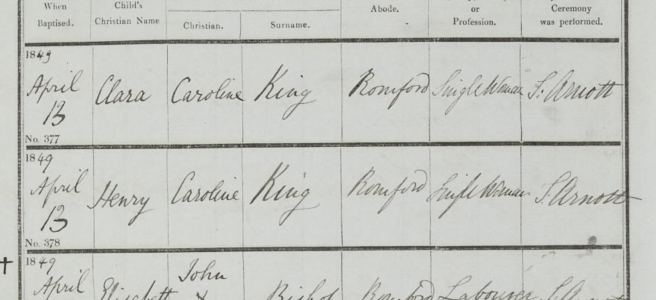 When Child's Abode. or Ceremony
Baptised. Christian Name Christian. Surname. Profession. was performed.
1849
April Clara Caroline King Romford Single Woman S. Arnott
13
No. 377
1849
April Henry Caroline King Romford Single Woman S. Arnott
13
No. 378
1849
John
April Elizabeth Bishop Romford Labourer